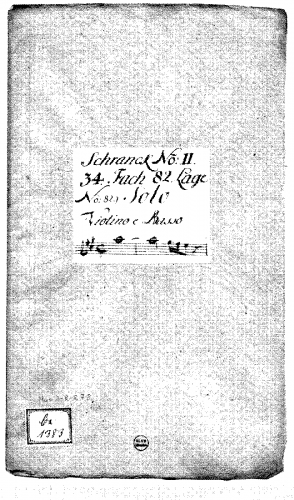 Schranck No: II.
34. Fach 82 Lage
No: 82.) Solo
Violino e Basso
1983